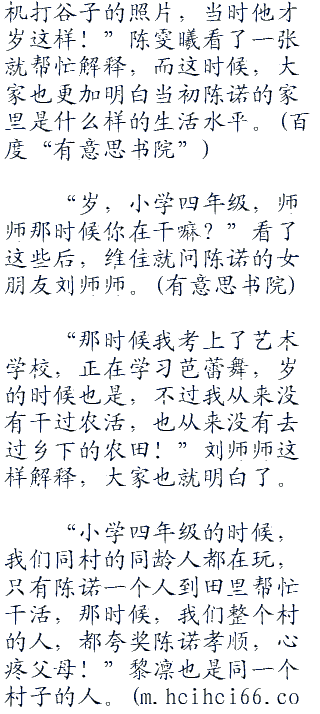 机打谷子的照片，当时他才
岁这样！”陈雯曦看了一张
就帮忙解释，而这时候，大
家也更加明白当初陈诺的家
里是什么样的生活水平。(百
度“有意思书院”)
“岁，小学四年级，师
师那时候你在干嘛？”看了
这些后，维佳就问陈诺的女
朋友刘师师。(有意思书院)
“那时候我考上了艺术
学校，正在学习芭蕾舞，岁
的时候也是，不过我从来没
有干过农活，也从来没有去
过乡下的农田！”刘师师这
样解释，大家也就明白了。
“小学四年级的时候，
我们同村的同龄人都在玩，
只有陈诺一个人到田里帮忙
干活，那时候，我们整个村
的人，都夸奖陈诺孝顺，心
疼父母！”黎凛也是同一个
村子的人。(m.hcihci66.co